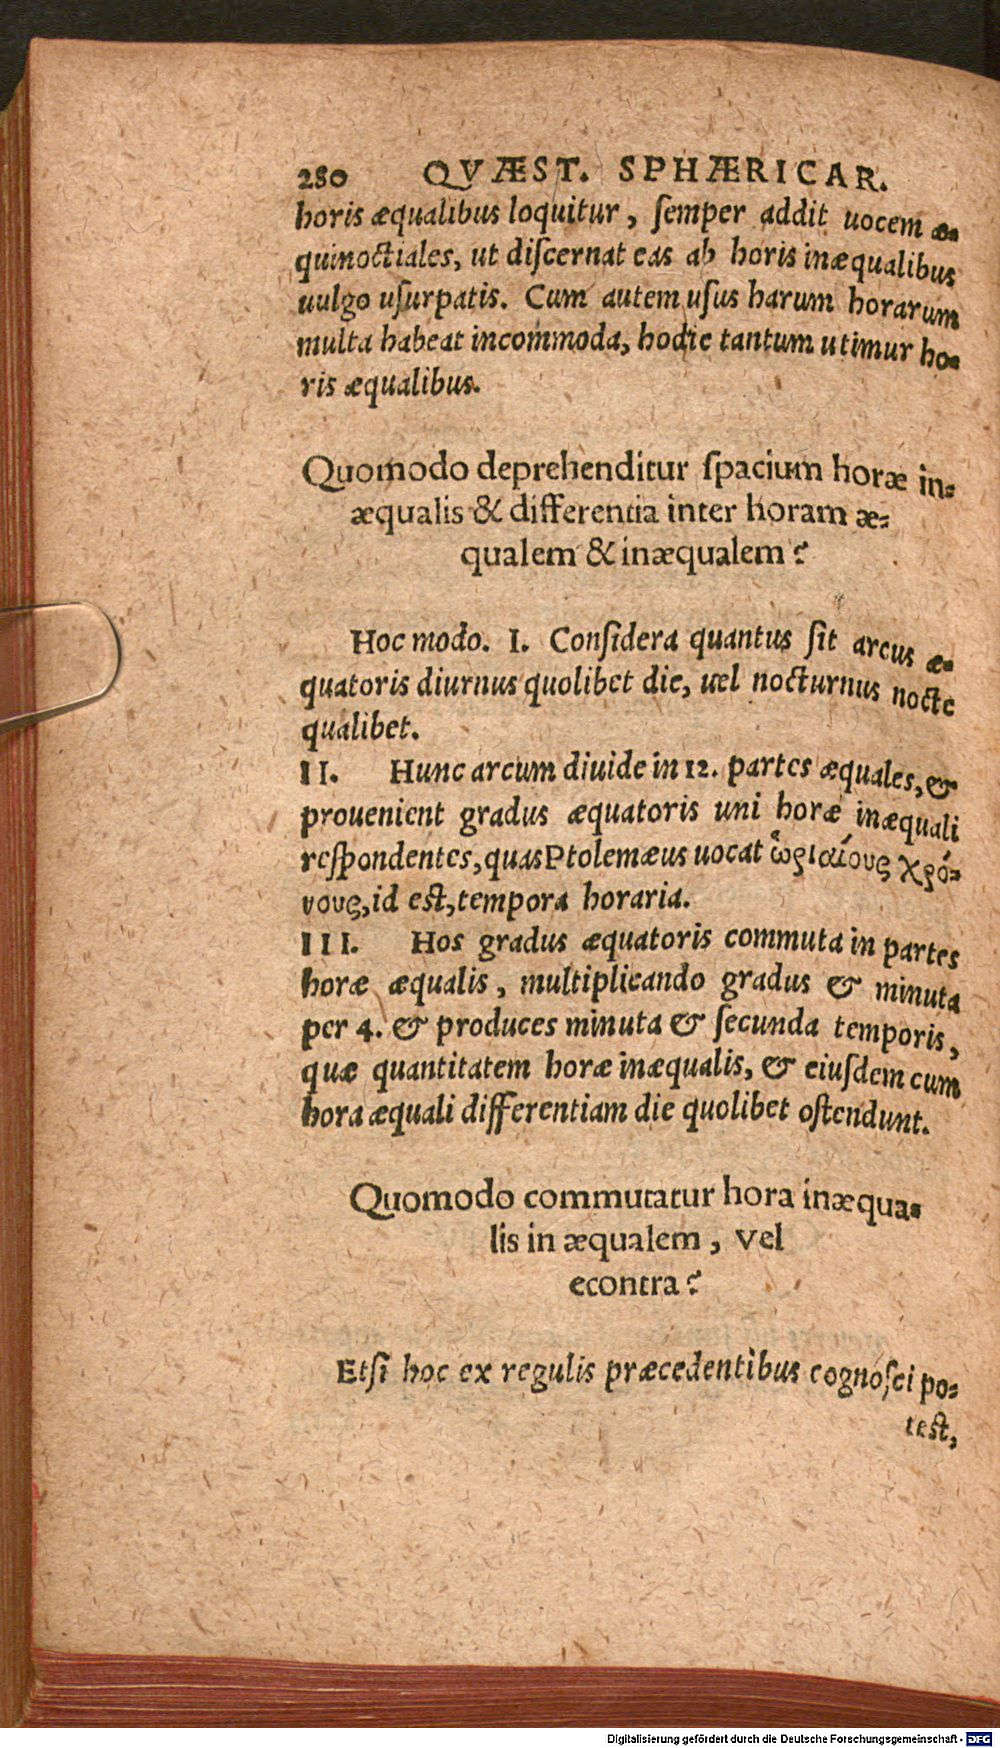 280 QVÆST. SPHÆRICAR.
horis æqualibus loquitur, ſemper addit uocem æ=
quinoctiales, ut diſcernat eas ab horis inæqualibus
uulgo uſurpatis. Cum autem uſus harum horarum
multa habeat incommoda, hodie tantum utimur ho=
ris æqualibus.
Quomodo deprehenditur ſpacium horæ in=
æqualis & differentia inter horam æ=
qualem & inæqualem?
Hoc modo. I. Conſidera quantus ſit arcus æ=
quatoris diurnus quolibet die, uel nocturnus nocte
qualibet.
II. Hunc arcum diuide in 12. partes æquales, &
prouenient gradus æquatoris uni horæ inæquali
reſpondentes, quas Ptolemæus uocat ὡριαίους χρό=
νους, id eſt, tempora horaria.
III. Hos gradus æquatoris commuta in partes
horæ æqualis, multiplicando gradus & minuta
per 4. & produces minuta & ſecunda temporis,
quæ quantitatem horæ inæqualis, & eiuſdem cum
hora æquali differentiam die quolibet oſtendunt.
Quomodo commutatur hora inæqua=
lis in æqualem, vel
econtra?
Etſi hoc ex regulis præcedentibus cognoſci po=
teſt,
Digitalisierung gefördert durch die Deutsche Forschungsgemeinschaft - DFG